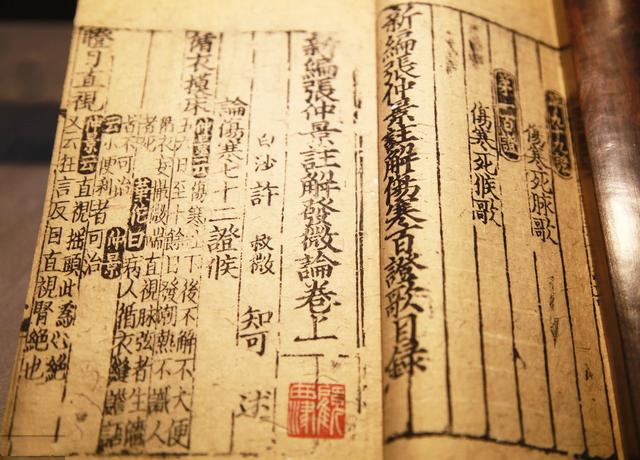 第九十九證
傷寒死脉歌
第一百證
傷寒死候歌
新編張仲景註解傷寒百證歌目錄
新編張仲景註解發微論卷上
白沙許 叔微 知可 述
論傷寒七十二證候
循衣摸床 仲景云傷寒上下後不解不大便
五六日至十餘日發潮熱不識人
循衣妄撮惕喘直視脉弦者生濇
者死 華佗曰病人循衣縫譫語
者不可治 仲景
云小便利者可治
瞪目直視 仲景云直視搖頭此爲心絶
又云狂言反目直視腎絶也